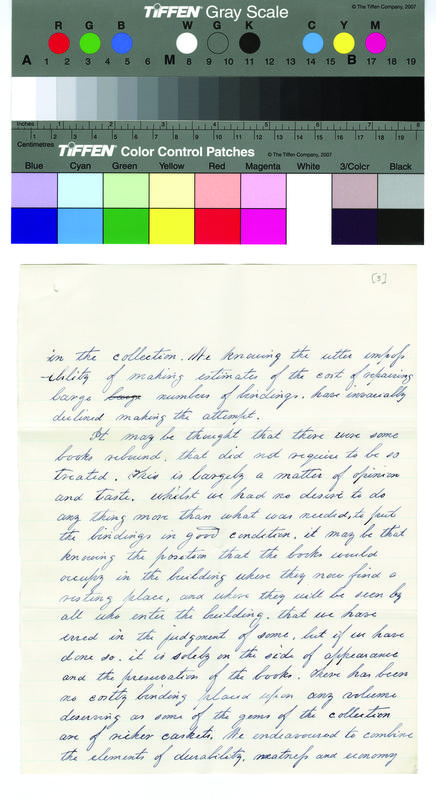 TIFFEN Gray Scale
© The Tiffen Company, 2007
R G B W G K C Y M
A 1 2 3 4 5 6 M 8 9 10 11 12 13 14 15 B 17 18 19
Inches 1 2 3 4 5 6 7 8
Centimetres 1 2 3 4 5 6 7 8 9 10 11 12 13 14 15 16 17 18 19
TIFFEN Color Control Patches
© The Tiffen Company, 2007
Blue Cyan Green Yellow Red Magenta White 3/Color Black
[3]
in the collection. We knowing the utter improb
-ability of making estimates of the cost of repairing
large large numbers of bindings, have invariably
declined making the attempt.
It may be thought that there were some
books rebound, that did not require to be so
treated. This is largely a matter of opinion
and taste. whilst we had no desire to do
any thing more than what was needed, to put
the bindings in good condition, it may be that
knowing the position that the books would
occupy in the building where they now find a
resting place, and where they will be seen by
all who enter the building, that we have
erred in the judgment of some, but if we have
done so, it is solely on the side of appearance
and the preservation of the books. There has been
no costly binding placed upon any volume
deserving as some of the gems of the collection
are of richer caskets. We endeavoured to combine
the elements of durability, neatness and economy